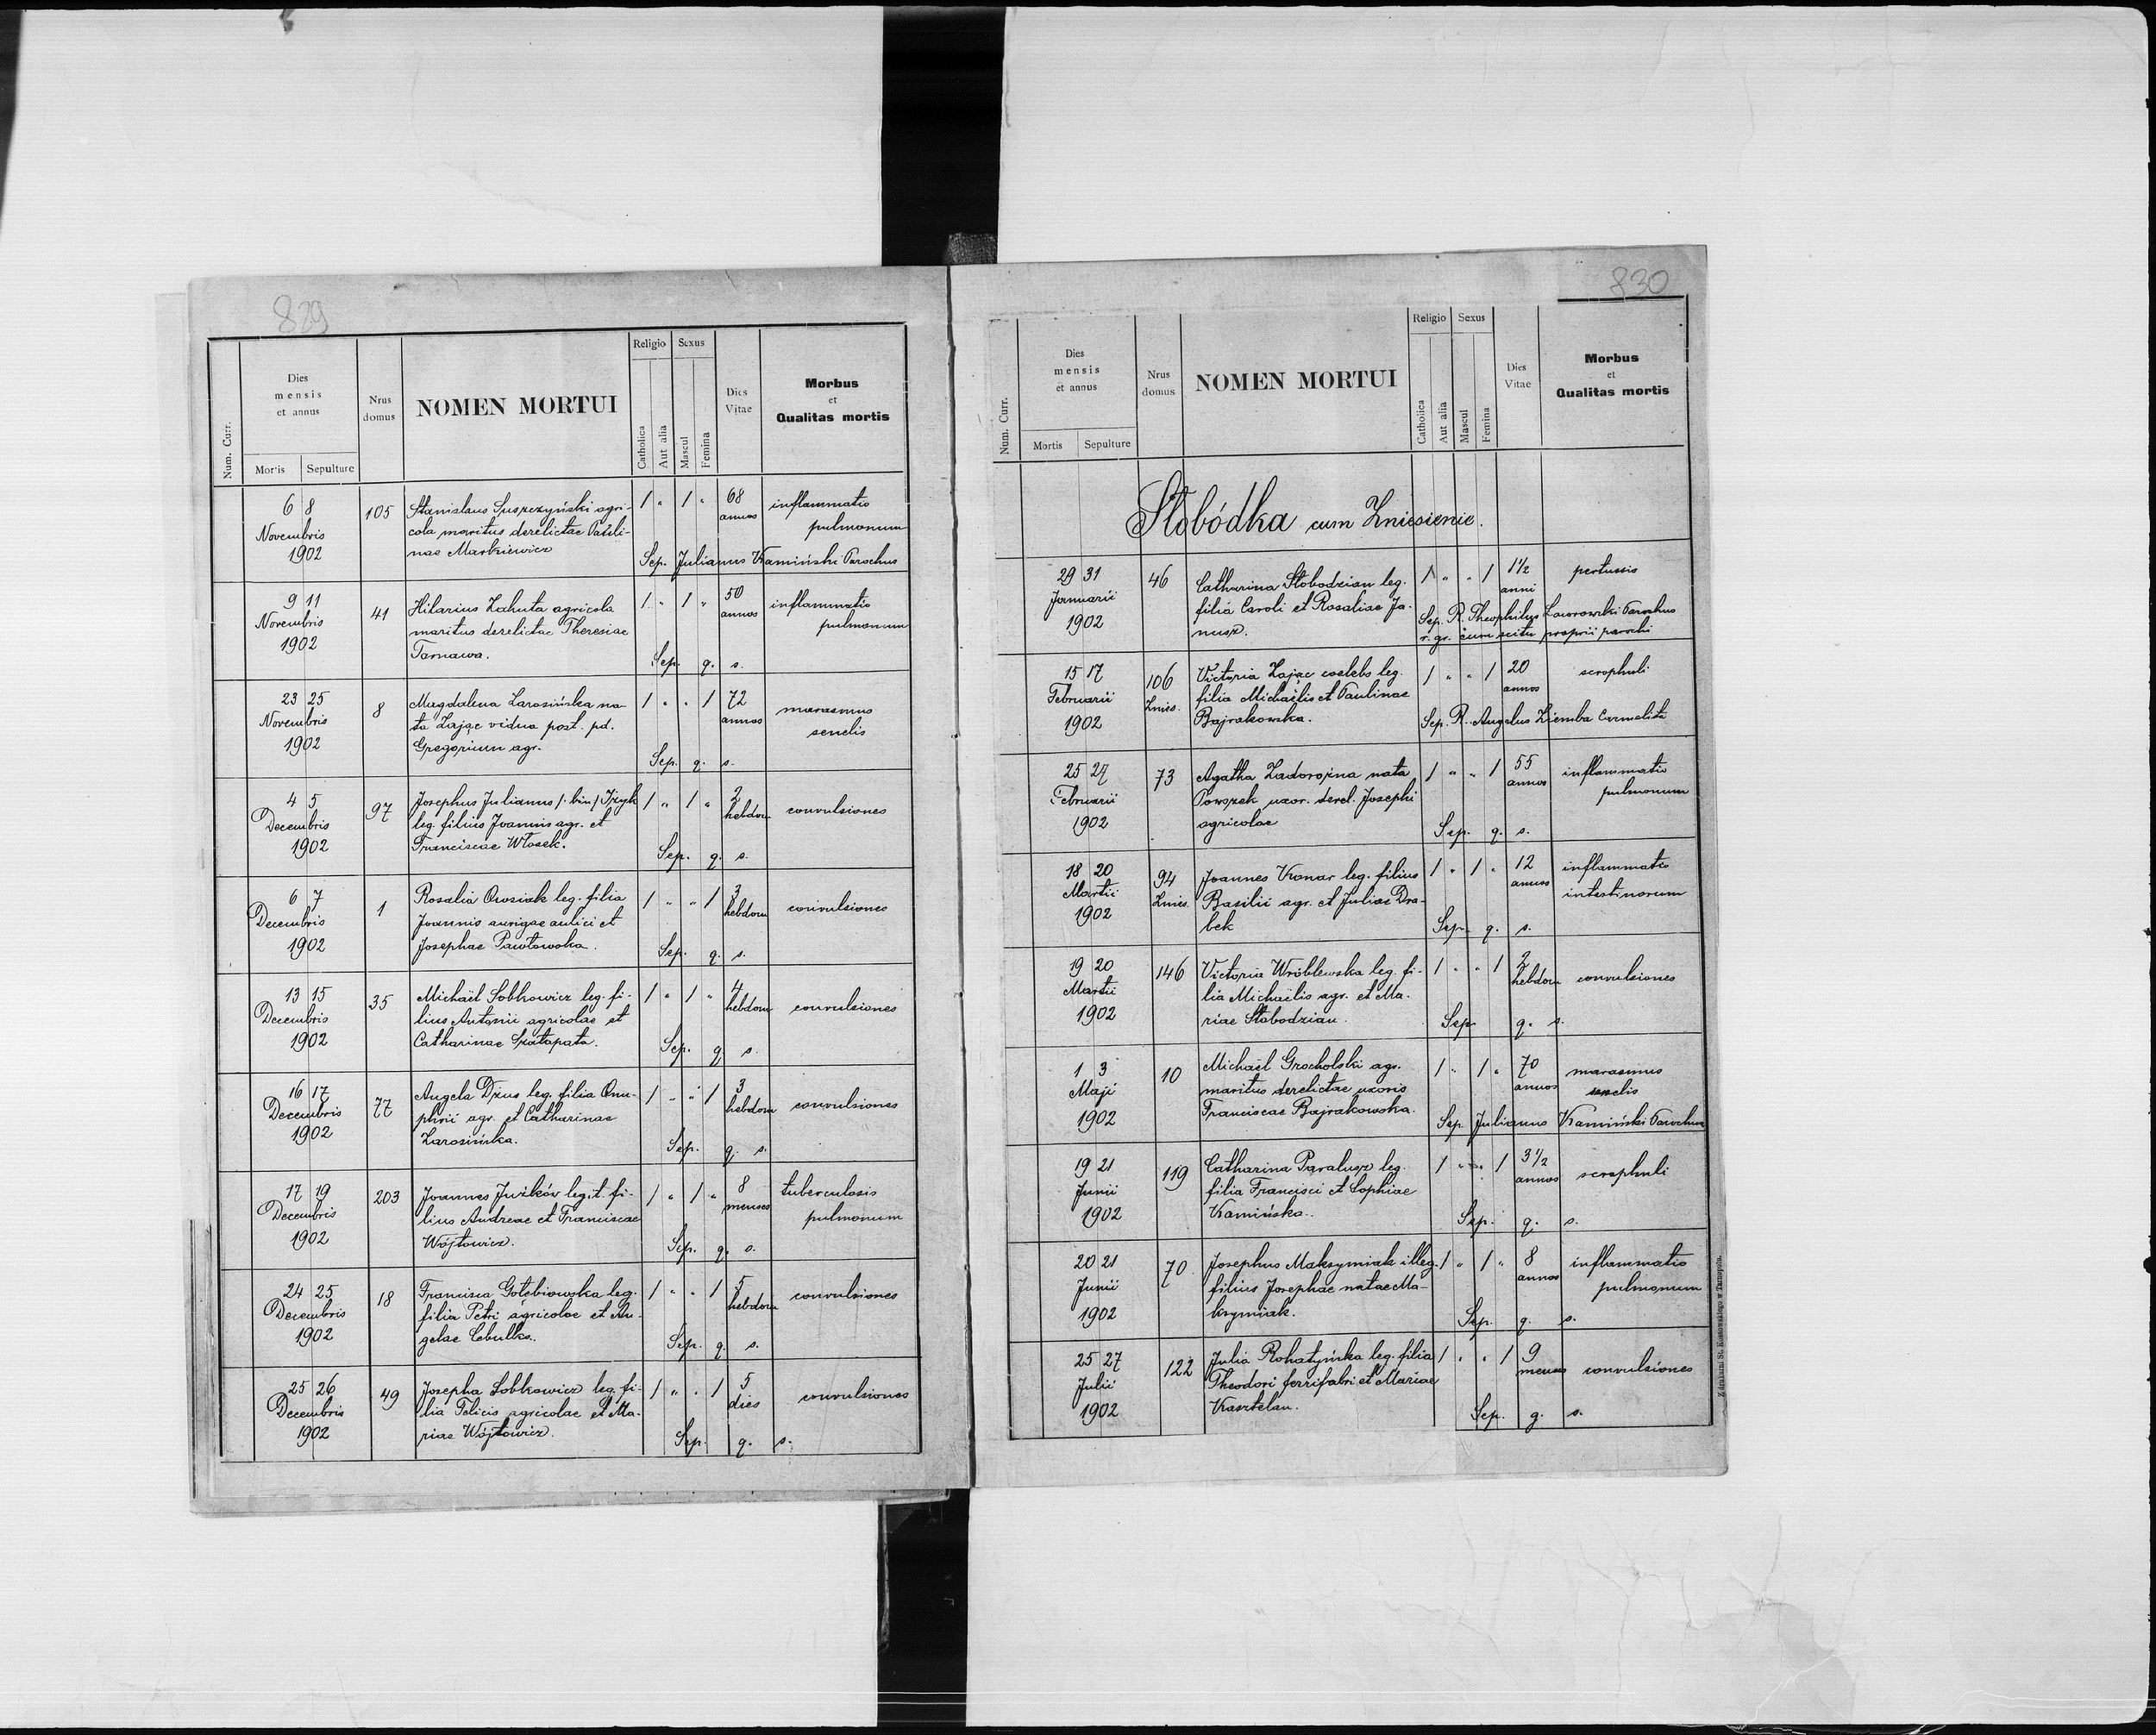 829
Num. Curr.
Dies mensis et annus
Mortis Sepulture
Nrus domus
NOMEN MORTUI
Religio
Catholica
Aut alia
Sexus
Mascul
Femina
Dies Vitae
Morbus et Qualitas mortis
6 8 105 Stanislaus Suszczyński agri- 1 " 1 " 68 inflammatio
Novembris cola maritus derelictae Pauli- annos pulmonum
1902 nae Markiewicz Sep. Julianus Kamiński Parochus
9 11 41 Hilarius Zahuta agricola 1 " 1 " 50 inflammatio
Novembris maritus derelictae Theresiae annos pulmonum
1902 Tarnawa. Sep. q. s.
23 25 8 Magdalena Zarosińska na- 1 " " 1 72 marasmus
Novembris ta Zając vidua post. pd. annos senelis
1902 Gregorium agr. Sep. q. s.
4 5 97 Josephus Julianus /: bin/ Iżyk 1 " 1 " 2 convulsiones
Decembris leg. filius Joannis agr. et hebdom
1902 Franciscae Włosek. Sep. q. s.
6 7 1 Rosalia Owsiak leg. filia 1 " " 1 3 convulsiones
Decembris Joannis aurigae aulici et hebdom
1902 Josephae Pawłowska. Sep. q. s.
13 15 35 Michaël Sobkowicz leg. fi- 1 " 1 " 4 convulsiones
Decembris lius Antonii agricolae et hebdom
1902 Catharinae Szatapata. Sep. q. s.
16 17 77 Angela Dżus leg. filia Onu- 1 " " 1 3 convulsiones
Decembris phrii agr. et Catharinae hebdom
1902 Zarosińska. Sep. q. s.
17 19 203 Joannes Jużków legit. fi- 1 " 1 " 8 tuberculosis
Decembris lius Andreae et Franciscae menses pulmonum
1902 Wójtowicz. Sep. q. s.
24 25 18 Francisca Gołębiowska leg. 1 " " 1 5 convulsiones
Decembris filia Petri agricolae et An- hebdom
1902 gelae Cebulka. Sep. q. s.
25 26 49 Josepha Sobkowicz leg. fi- 1 " " 1 5 convulsiones
Decembris lia Felicis agricolae et Ma- dies
1902 riae Wójtowicz. Sep. q. s.
830
Num. Curr.
Dies mensis et annus
Mortis Sepulture
Nrus domus
NOMEN MORTUI
Religio
Catholica
Aut alia
Sexus
Mascul
Femina
Dies Vitae
Morbus et Qualitas mortis
Słobódka cum Zniesienie.
29 31 46 Catharina Słobodzian leg. 1 " " 1 1 1/2 pertussis
Januarii filia Caroli et Rosaliae Ja- anni
1902 nusz. Sep. R. Theophilus Laworowski Parochus
r. gr. cum scitu proprii parochi
15 17 106 Victoria Zając coelebs leg. 1 " " 1 20 scrophuli
Februarii Znies. filia Michaëlis et Paulinae annos
1902 Bajrakowska. Sep. R. Angelus Ziemba Carmelita
25 27 73 Agatha Zadorojna nata 1 " " 1 55 inflammatio
Februarii Powszek uxor. derel. Josephi annos pulmonum
1902 agricolae Sep. q. s.
18 20 94 Joannes Konar leg. filius 1 " 1 " 12 inflammatio
Martii Znies. Basilii agr. et Juliae Dra- annos intestinorum
1902 bek Sep. q. s.
19 20 146 Victoria Wróblewska leg. fi- 1 " " 1 2 convulsiones
Martii lia Michaëlis agr. et Ma- hebdom
1902 riae Słobodzian. Sep. q. s.
1 3 10 Michaël Grocholski agr. 1 " 1 " 70 marasmus
Maji maritus derelictae uxoris annos senelis
1902 Franciscae Bajrakowska. Sep. Julianus Kamiński Parochus
19 21 119 Catharina Paralusz leg. 1 " " 1 3 1/2 scrophuli
Junii filia Francisci et Sophiae annos
1902 Kamińska. Sep. q. s.
20 21 70 Josephus Maksymiak illeg. 1 " 1 " 8 inflammatio
Junii filius Josephae natae Ma- annos pulmonum
1902 ksymiak. Sep. q. s.
25 27 122 Julia Rohatyńska leg. filia 1 " " 1 9 convulsiones
Julii Theodori ferrifabri et Mariae menses
1902 Kasztelan. Sep. q. s.
Z drukarni St. Kossowskiego w Tarnopolu.